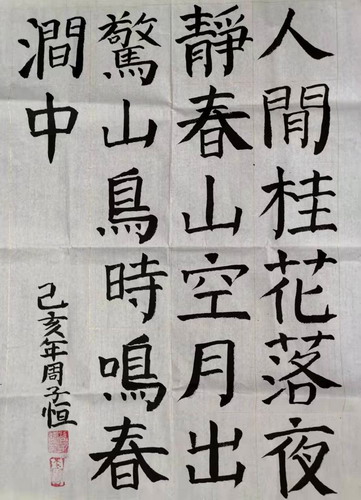 人閒桂花落夜
靜春山空月出
驚山鳥時鳴春
澗中
己亥年周子恒